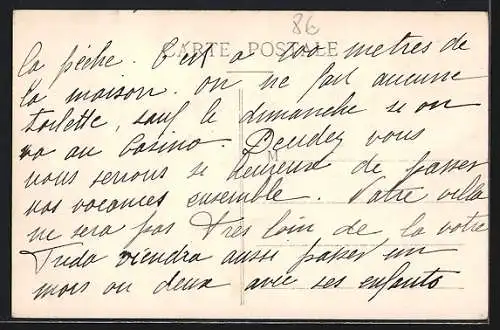 86
CARTE POSTALE
la pêche. C'est a 200 metres de
la maison. on ne fait aucune
toilette, sauf le dimanche si on
va au Casino. Pendez vous
M
nous serions si heureux de passer
vos vacances ensemble. Votre villa
ne sera pas Très loin de la votre
Tuda viendra aussi passer un
mois ou deux avec ses enfants